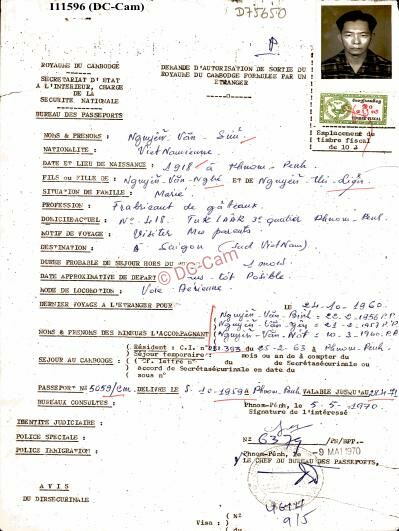 111596 (DC-Cam)
D75650
ROYAUME DU CAMBODGE
SECRETARIAT D'ETAT
A L'INTERIEUR, CHARGE
DE LA
SECURITE NATIONALE
BUREAU DES PASSEPORTS
DEMANDE D'AUTORISATION DE SORTIE DU
ROYAUME DU CAMBODGE FORMULEE PAR UN
ETRANGER
Emplacement de
timbre fiscal
de 10
NOMS & PRENOMS : Nguyễn Văn
NATIONALITE : Vietnamienne.
DATE ET LIEU DE NAISSANCE : 1918 à Phnom-Penh
FILS ou FILLE DE : Nguyễn-Văn-Nghé ET DE Nguyễn Thi
SITUATION DE FAMILLE : Marié.
PROFESSION : Fabricant de gâteaux.
DOMICILE ACTUEL : N° 418. Tuk Laak 3e quatier Phnom-Penh.
MOTIF DE VOYAGE : Visiter Mes parents
DESTINATION : à Saigon (Sud VietNam)
DUREE PROBABLE DE SEJOUR HORS DU 1 mois.
DATE APPROXIMATIVE DE DEPART tôt Posible.
MODE DE LOCOMOTION : Voie Aérienne.
© DC-Cam
DERNIER VOYAGE A L'ETRANGER POUR LE 24-10-1960.
NOMS & PRENOMS DES MINEURS L'ACCOMPAGNANT
Nguyễn-Văn-Bình = 22-2-1956 P.P.
Nguyễn-Văn = 21-2-1957 P.P.
Nguyễn-Văn = 10-3-1960 P.P.
SEJOUR AU CAMBODGE :
Résident : C.I. n° 393 du 25-2-63 à Phnom-Penh.
Séjour temporaire : mois ou an à compter du
Cf. lettre n° du de Secrétasécurinale ou
accord de Secrétasécurinale en date du
sous n°
PASSEPORT N° 5059/cm. DELIVRE LE 5-10-1959 à Phnom-Penh VALABLE JUSQU'AU
BUREAUX CONSULTES :
Phnom-Pénh, le 5-5-1970
Signature de l'intéressé
IDENTITE JUDICIAIRE :
POLICE SPECIALE :
POLICE IMMIGRATION :
N° 6379 /PS/BPP.-
Phnom-Pénh, le - 9 MAI 1970
LE CHEF DU BUREAU DES PASSEPORTS,
AVIS
DU
DIRSECURINALE
9/5
Visa : ( N°
( du